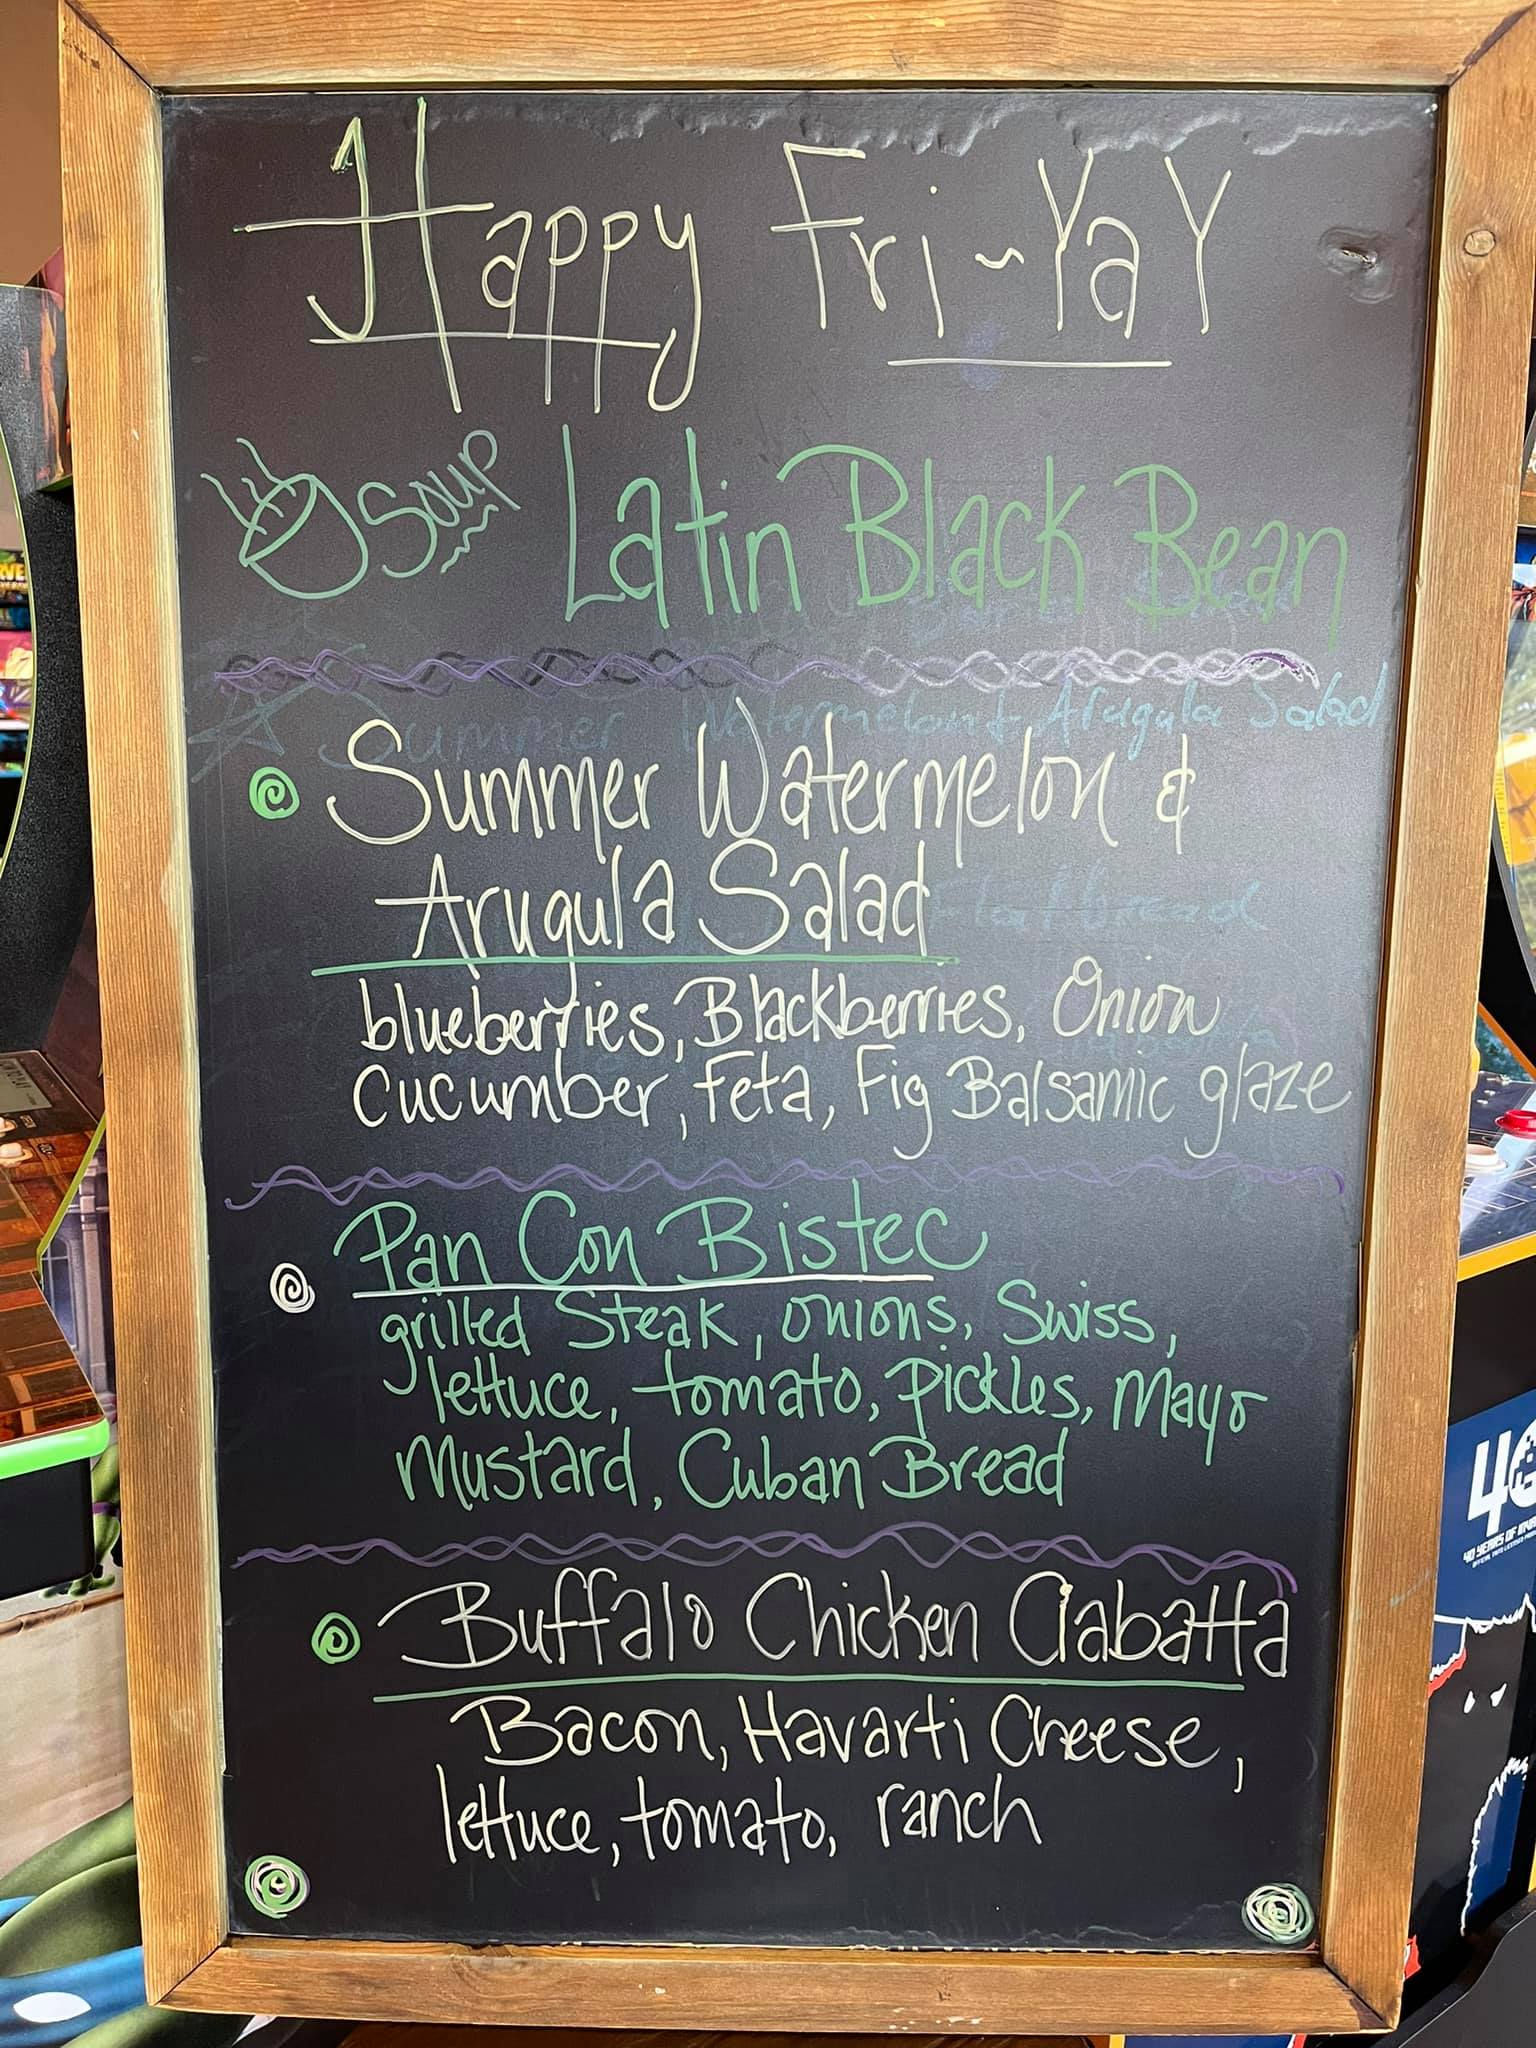 Happy Fri~YaY
Soup Latin Black Bean
Summer Watermelon + Arugula Salad
Summer Watermelon &
Arugula Salad
Flatbread
blueberries, Blackberries, Onion
cucumber, Feta, Fig Balsamic glaze
Pan Con Bistec
grilled Steak, onions, Swiss,
lettuce, tomato, pickles, Mayo
Mustard, Cuban Bread
Buffalo Chicken Ciabatta
Bacon, Havarti Cheese,
lettuce, tomato, ranch
40